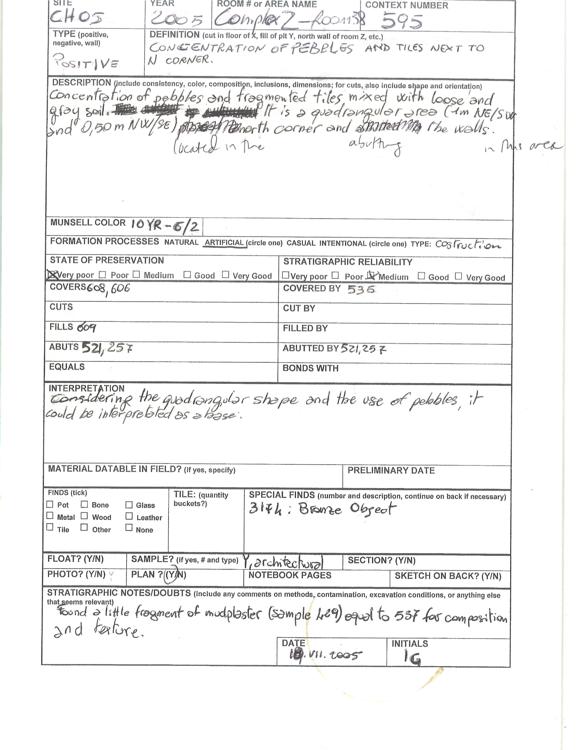 SITE YEAR ROOM # or AREA NAME CONTEXT NUMBER
CH05 2005 Complex Z-Room 38 595
TYPE (positive, negative, wall) DEFINITION (cut in floor of X, fill of pit Y, north wall of room Z, etc.)
POSITIVE CONCENTRATION OF PEBBLES AND TILES NEXT TO
N CORNER.
DESCRIPTION (include consistency, color, composition, inclusions, dimensions; for cuts, also include shape and orientation)
Concentration of pebbles and fragmented tiles, mixed with loose and
gray soil. It is a quadrangular area (1m NE/SW
and 0,50 m NW/SE) located in the north corner and abutting the walls.
in this area
MUNSELL COLOR 10YR-6/2
FORMATION PROCESSES NATURAL ARTIFICIAL (circle one) CASUAL INTENTIONAL (circle one) TYPE: Costruction
STATE OF PRESERVATION STRATIGRAPHIC RELIABILITY
Very poor Poor Medium Good Very Good Very poor Poor Medium Good Very Good
COVERS 608,606 COVERED BY 536
CUTS CUT BY
FILLS 609 FILLED BY
ABUTS 521,257 ABUTTED BY 521,257
EQUALS BONDS WITH
INTERPRETATION
Considering the quadrangular shape and the use of pebbles, it
could be interpretated as a base.
MATERIAL DATABLE IN FIELD? (if yes, specify) PRELIMINARY DATE
FINDS (tick) TILE: (quantity buckets?) SPECIAL FINDS (number and description, continue on back if necessary)
Pot Bone Glass 3174: Bronze Object
Metal Wood Leather
Tile Other None
FLOAT? (Y/N) SAMPLE? (if yes, # and type) Y, architectural SECTION? (Y/N)
PHOTO? (Y/N) Y PLAN ? (Y/N) NOTEBOOK PAGES SKETCH ON BACK? (Y/N)
STRATIGRAPHIC NOTES/DOUBTS (include any comments on methods, contamination, excavation conditions, or anything else
that seems relevant)
Found a little fragment of mudplaster (sample 429) equal to 537 for composition
and texture.
DATE INITIALS
.VII.2005 IG